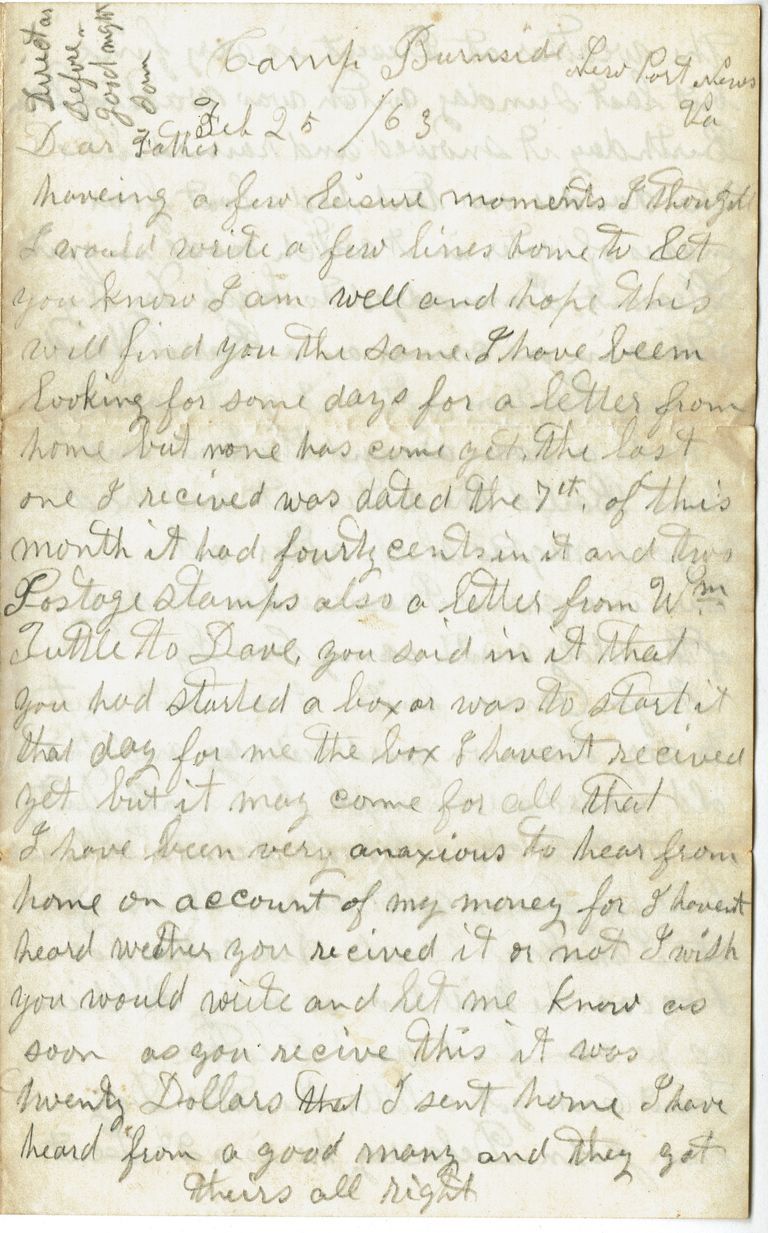 Direct as
Before.
good night
Tom
Camp Burnside New Port News
Va
Feb 25 /63
Dear Father
haveing a few leisure moments I thought
I would write a few lines home to let
you know I am well and hope this
will find you the same. I have beem
looking for some days for a letter from
home but none has come yet. The last
one I recived was dated the 7th. of this
month it had fourty cents in it and two
Postage stamps also a letter from Wm
Tuttle to Dave, you said in it that
you had started a box or was to start it
that day for me the box I havent recived
yet but it may come for all that
I have been very anaxious to hear from
home on account of my money for I havent
heard wether you recived it or not I wish
you would write and let me know as
soon as you recive this it was
twenty Dollars that I sent home I have
heard from a good many and they got
theirs all right